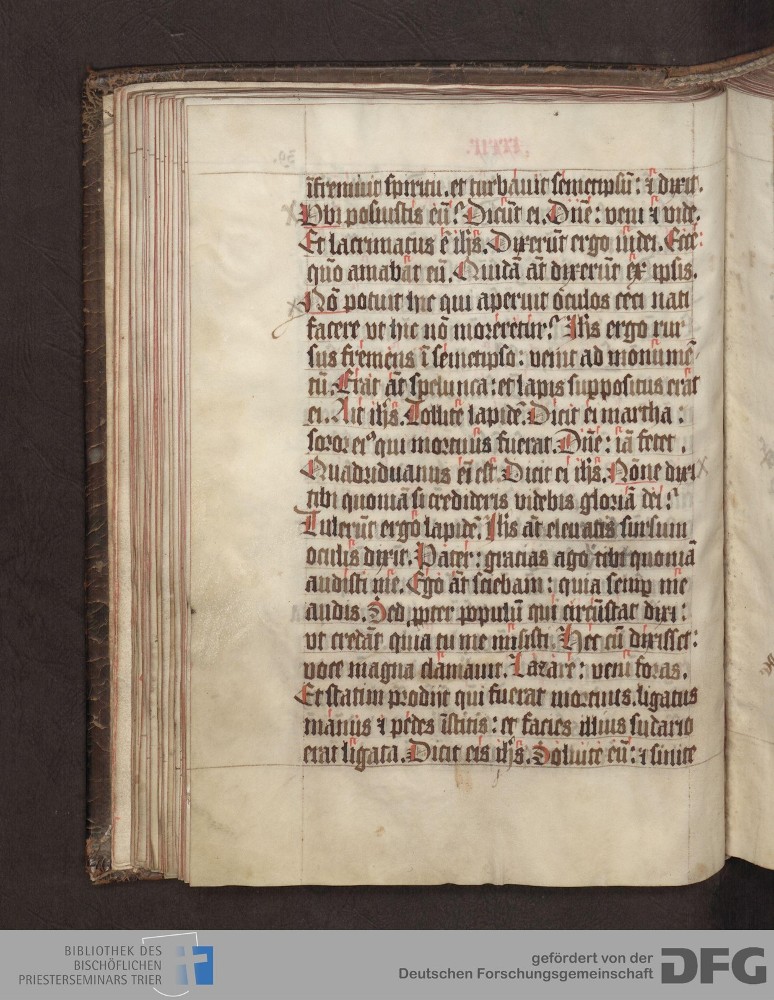 īfremuit spiritu. et turbauit semetipsū: ⁊ dixit.
Vbi posuistis eū? Dicūt ei. Dn̄e: veni ⁊ vide.
Et lacrimatus ē ih̄s. Dixerūt ergo iudei. Ecce
quō amabat eū. Quidā aūt dixerūt ex ipsis.
Nō potuit hic qui aperuit oculos ceci nati
facere vt hic nō moreretur? Ih̄s ergo rur
sus fremens ī semetipso: venit ad monumē
tū. Erat āt spelunca: et lapis suppositus erat
ei. Ait ih̄s. Tollite lapidē. Dicit ei martha:
soror eiꝰ qui mortuus fuerat. Dn̄e: iā fetet.
Quadriduanus eī est. Dicit ei ih̄s. Nōne dixi
tibi quoniā si credideris videbis gloriā dei?
Tulerūt ergo lapidē. Ih̄s āt eleuatis sursum
oculis dixit. Pater: gratias ago tibi quoniā
audisti me. Ego āt sciebam: quia semꝑ me
audis. Sed ꝓpter populū qui circūstat dixi:
vt credāt quia tu me misisti. Hec cū dixisset:
voce magna clamauit. Lazare: veni foras.
Et statim prodiit qui fuerat mortuus. ligatus
manus ⁊ pedes īstitis: et facies illius sudario
erat ligata. Dicit eis ih̄s. Soluite eū: ⁊ sinite
BIBLIOTHEK DES
BISCHÖFLICHEN
PRIESTERSEMINARS TRIER
gefördert von der
Deutschen Forschungsgemeinschaft DFG